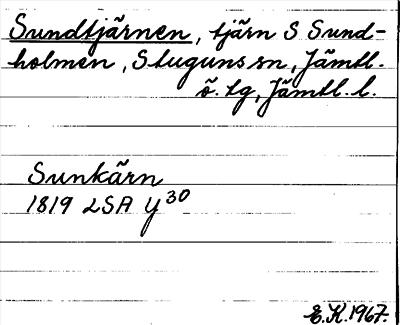 Sundtjärnen, tjärn S Sund-
holmen, Stuguns sn, Jämtl.
ö. tg, Jämtl. l.
Sunkärn
1819 LSA Y30
E.K. 1967.